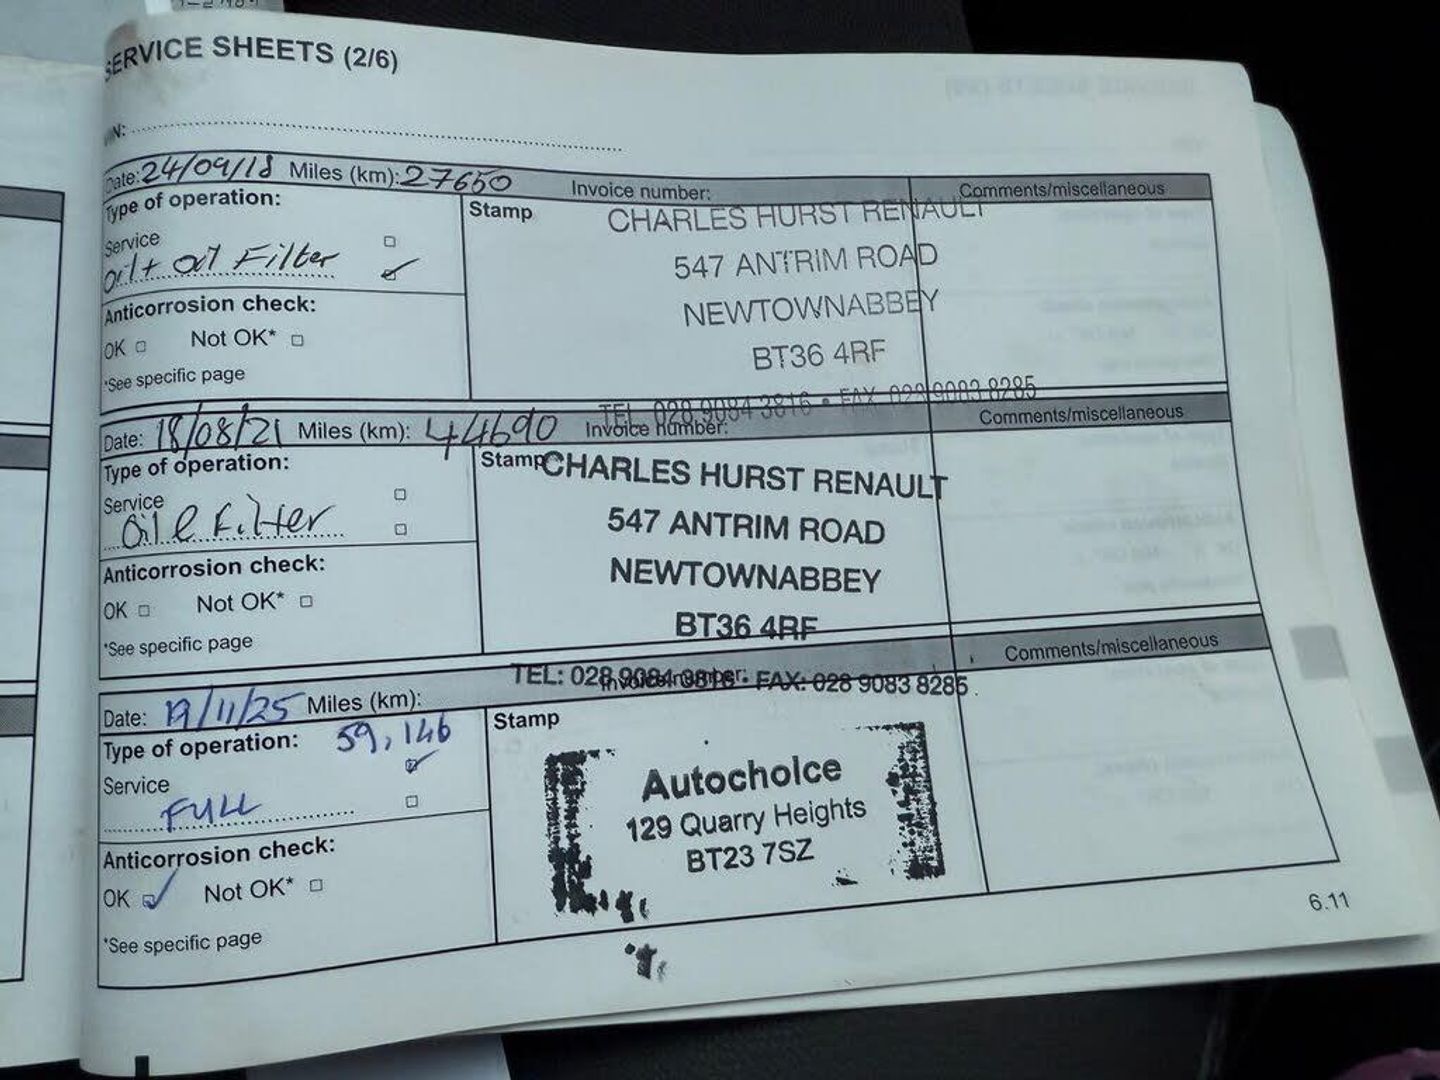 SERVICE SHEETS (2/6)
VIN:
Date: 24/09/18 Miles (km): 27650 Invoice number: Comments/miscellaneous
Type of operation:
Service
oil + oil Filter
Anticorrosion check:
OK Not OK*
*See specific page
Stamp
CHARLES HURST RENAULT
547 ANTRIM ROAD
NEWTOWNABBEY
BT36 4RF
TEL: 028 9084 3816 • FAX: 028 9083 8285
Date: 18/08/21 Miles (km): 44690 Invoice number: Comments/miscellaneous
Type of operation:
Service
Oil e Filter
Anticorrosion check:
OK Not OK*
*See specific page
Stamp
CHARLES HURST RENAULT
547 ANTRIM ROAD
NEWTOWNABBEY
BT36 4RF
TEL: 028 9084 3816 • FAX: 028 9083 8285
Date: 19/11/25 Miles (km): Invoice number: Comments/miscellaneous
Type of operation: 59,146
Service
FULL
Anticorrosion check:
OK Not OK*
*See specific page
Stamp
Autochoice
129 Quarry Heights
BT23 7SZ
6.11